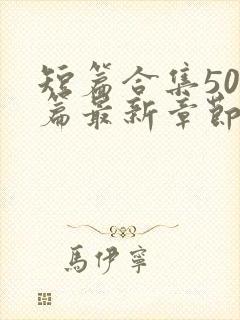 短篇合集50
篇最新章節
馬伊寧